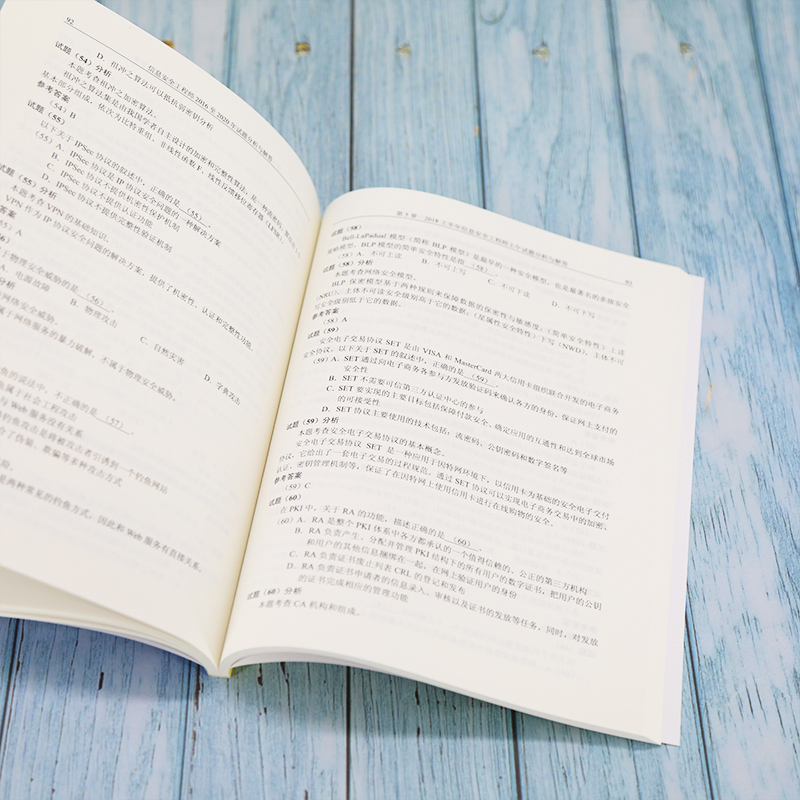 92
信息安全工程师 2016 年至 2020 年试题分析与解答
D. 祖冲之算法可以抵抗弱密钥分析
试题（54）分析
本题考查祖冲之加密算法。
祖冲之算法集是由我国学者自主设计的加密和完整性算法，是一种流密码。
基本部分组成，依次为比特重组、非线性函数 F、线性反馈移位寄存器（LFSR）。
参考答案
（54）B
试题（55）
以下关于 IPSec 协议的叙述中，正确的是 （55） 。
（55）A. IPSec 协议是 IP 协议安全问题的一种解决方案
B. IPSec 协议不提供机密性保护机制
C. IPSec 协议不提供认证功能
D. IPSec 协议不提供完整性验证机制
试题（55）分析
本题考查 VPN 的基础知识。
VPN 作为 IP 协议安全问题的解决方案，提供了机密性、认证和完整性功能。
答案
55）A
于物理安全威胁的是 （56） 。
A. 电源故障
B. 物理攻击
C. 自然灾害
D. 字典攻击
分析
网络安全威胁。
属于网络服务的暴力破解，不属于物理安全威胁。
鱼的说法中，不正确的是 （57） 。
鱼属于社会工程攻击
与 Web 服务没有关系
钓鱼攻击是将被攻击者引诱到一个钓鱼网站
合了伪装、欺骗等多种攻击方式
是两种常见的钓鱼方式，因此和 Web 服务有直接关系。
第 5 章 2018 上半年信息安全工程师上午试题分析与解答
93
试题（58）
Bell-LaPadual 模型（简称 BLP 模型）是最早的一种安全模型，也是最著名的多级安全
策略模型，BLP 模型的简单安全特性是指 （58） 。
（58）A. 不可上读
B. 不可上写
C. 不可下读
D. 不可下写
试题（58）分析
本题考查网络安全模型。
BLP 保密模型基于两种规则来保障数据的保密性与敏感度：（简单安全特性）上读
（NRU），主体不可读安全级别高于它的数据；（星属性安全特性）下写（NWD），主体不可
写安全级别低于它的数据。
参考答案
（58）A
试题（59）
安全电子交易协议 SET 是由 VISA 和 MasterCard 两大信用卡组织联合开发的电子商务
安全协议。以下关于 SET 的叙述中，正确的是 （59） 。
（59）A. SET 通过向电子商务各参与方发放验证码来确认各方的身份，保证网上支付的
安全性
B. SET 不需要可信第三方认证中心的参与
C. SET 要实现的主要目标包括保障付款安全、确定应用的互通性和达到全球市场
的可接受性
D. SET 协议主要使用的技术包括：流密码、公钥密码和数字签名等
试题（59）分析
本题考查安全电子交易协议的基本概念。
安全电子交易协议 SET 是一种应用于因特网环境下，以信用卡为基础的安全电子交付
协议，它给出了一套电子交易的过程规范。通过 SET 协议可以实现电子商务交易中的加密、
认证、密钥管理机制等，保证了在因特网上使用信用卡进行在线购物的安全。
参考答案
（59）C
试题（60）
在 PKI 中，关于 RA 的功能，描述正确的是 （60） 。
（60）A. RA 是整个 PKI 体系中各方都承认的一个值得信赖的、公正的第三方机构
B. RA 负责产生、分配并管理 PKI 结构下的所有用户的数字证书，把用户的公钥
和用户的其他信息捆绑在一起，在网上验证用户的身份
C. RA 负责证书废止列表 CRL 的登记和发布
D. RA 负责证书申请者的信息录入、审核以及证书的发放等任务，同时，对发放
的证书完成相应的管理功能
试题（60）分析
本题考查 CA 机构和组成。